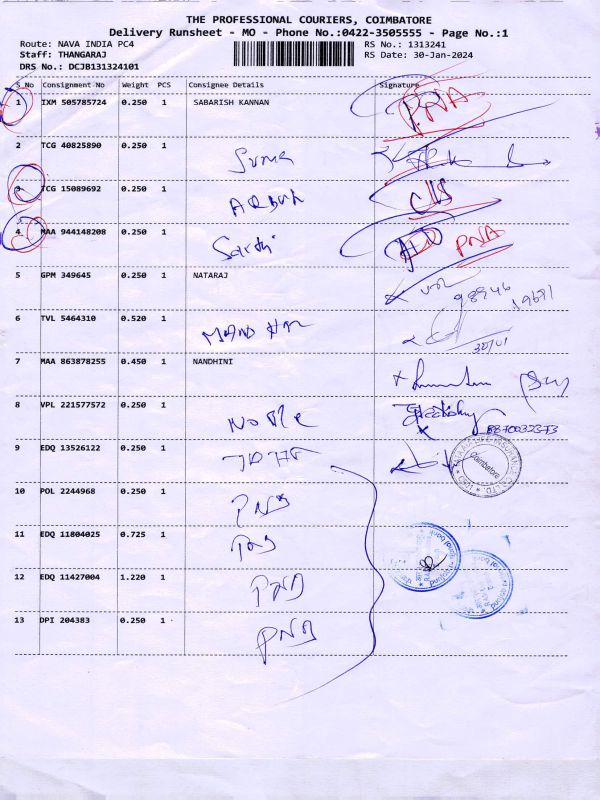 THE PROFESSIONAL COURIERS, COIMBATORE
Delivery Runsheet - MO - Phone No.:0422-3505555 - Page No.:1
Route: NAVA INDIA PC4
RS No.: 1313241
Staff: THANGARAJ
RS Date: 30-Jan-2024
DRS No.: DCJB131324101
S.No Consignment No Weight PCS Consignee Details Signature
1 IXM 505785724 0.250 1 SABARISH KANNAN PNA
2 TCG 40825890 0.250 1 Suma
3 TCG 15089692 0.250 1
4 MAA 944148208 0.250 1 PNA
5 GPM 349645 0.250 1 NATARAJ
6 TVL 5464310 0.520 1 30/01
7 MAA 863878255 0.450 1 NANDHINI
8 VPL 221577572 0.250 1 NOBLE
8870032373
9 EDQ 13526122 0.250 1
Coimbatore
10 POL 2244968 0.250 1 PNB
11 EDQ 11804025 0.725 1
12 EDQ 11427004 1.220 1 PNB
13 DPI 204383 0.250 1 PNB